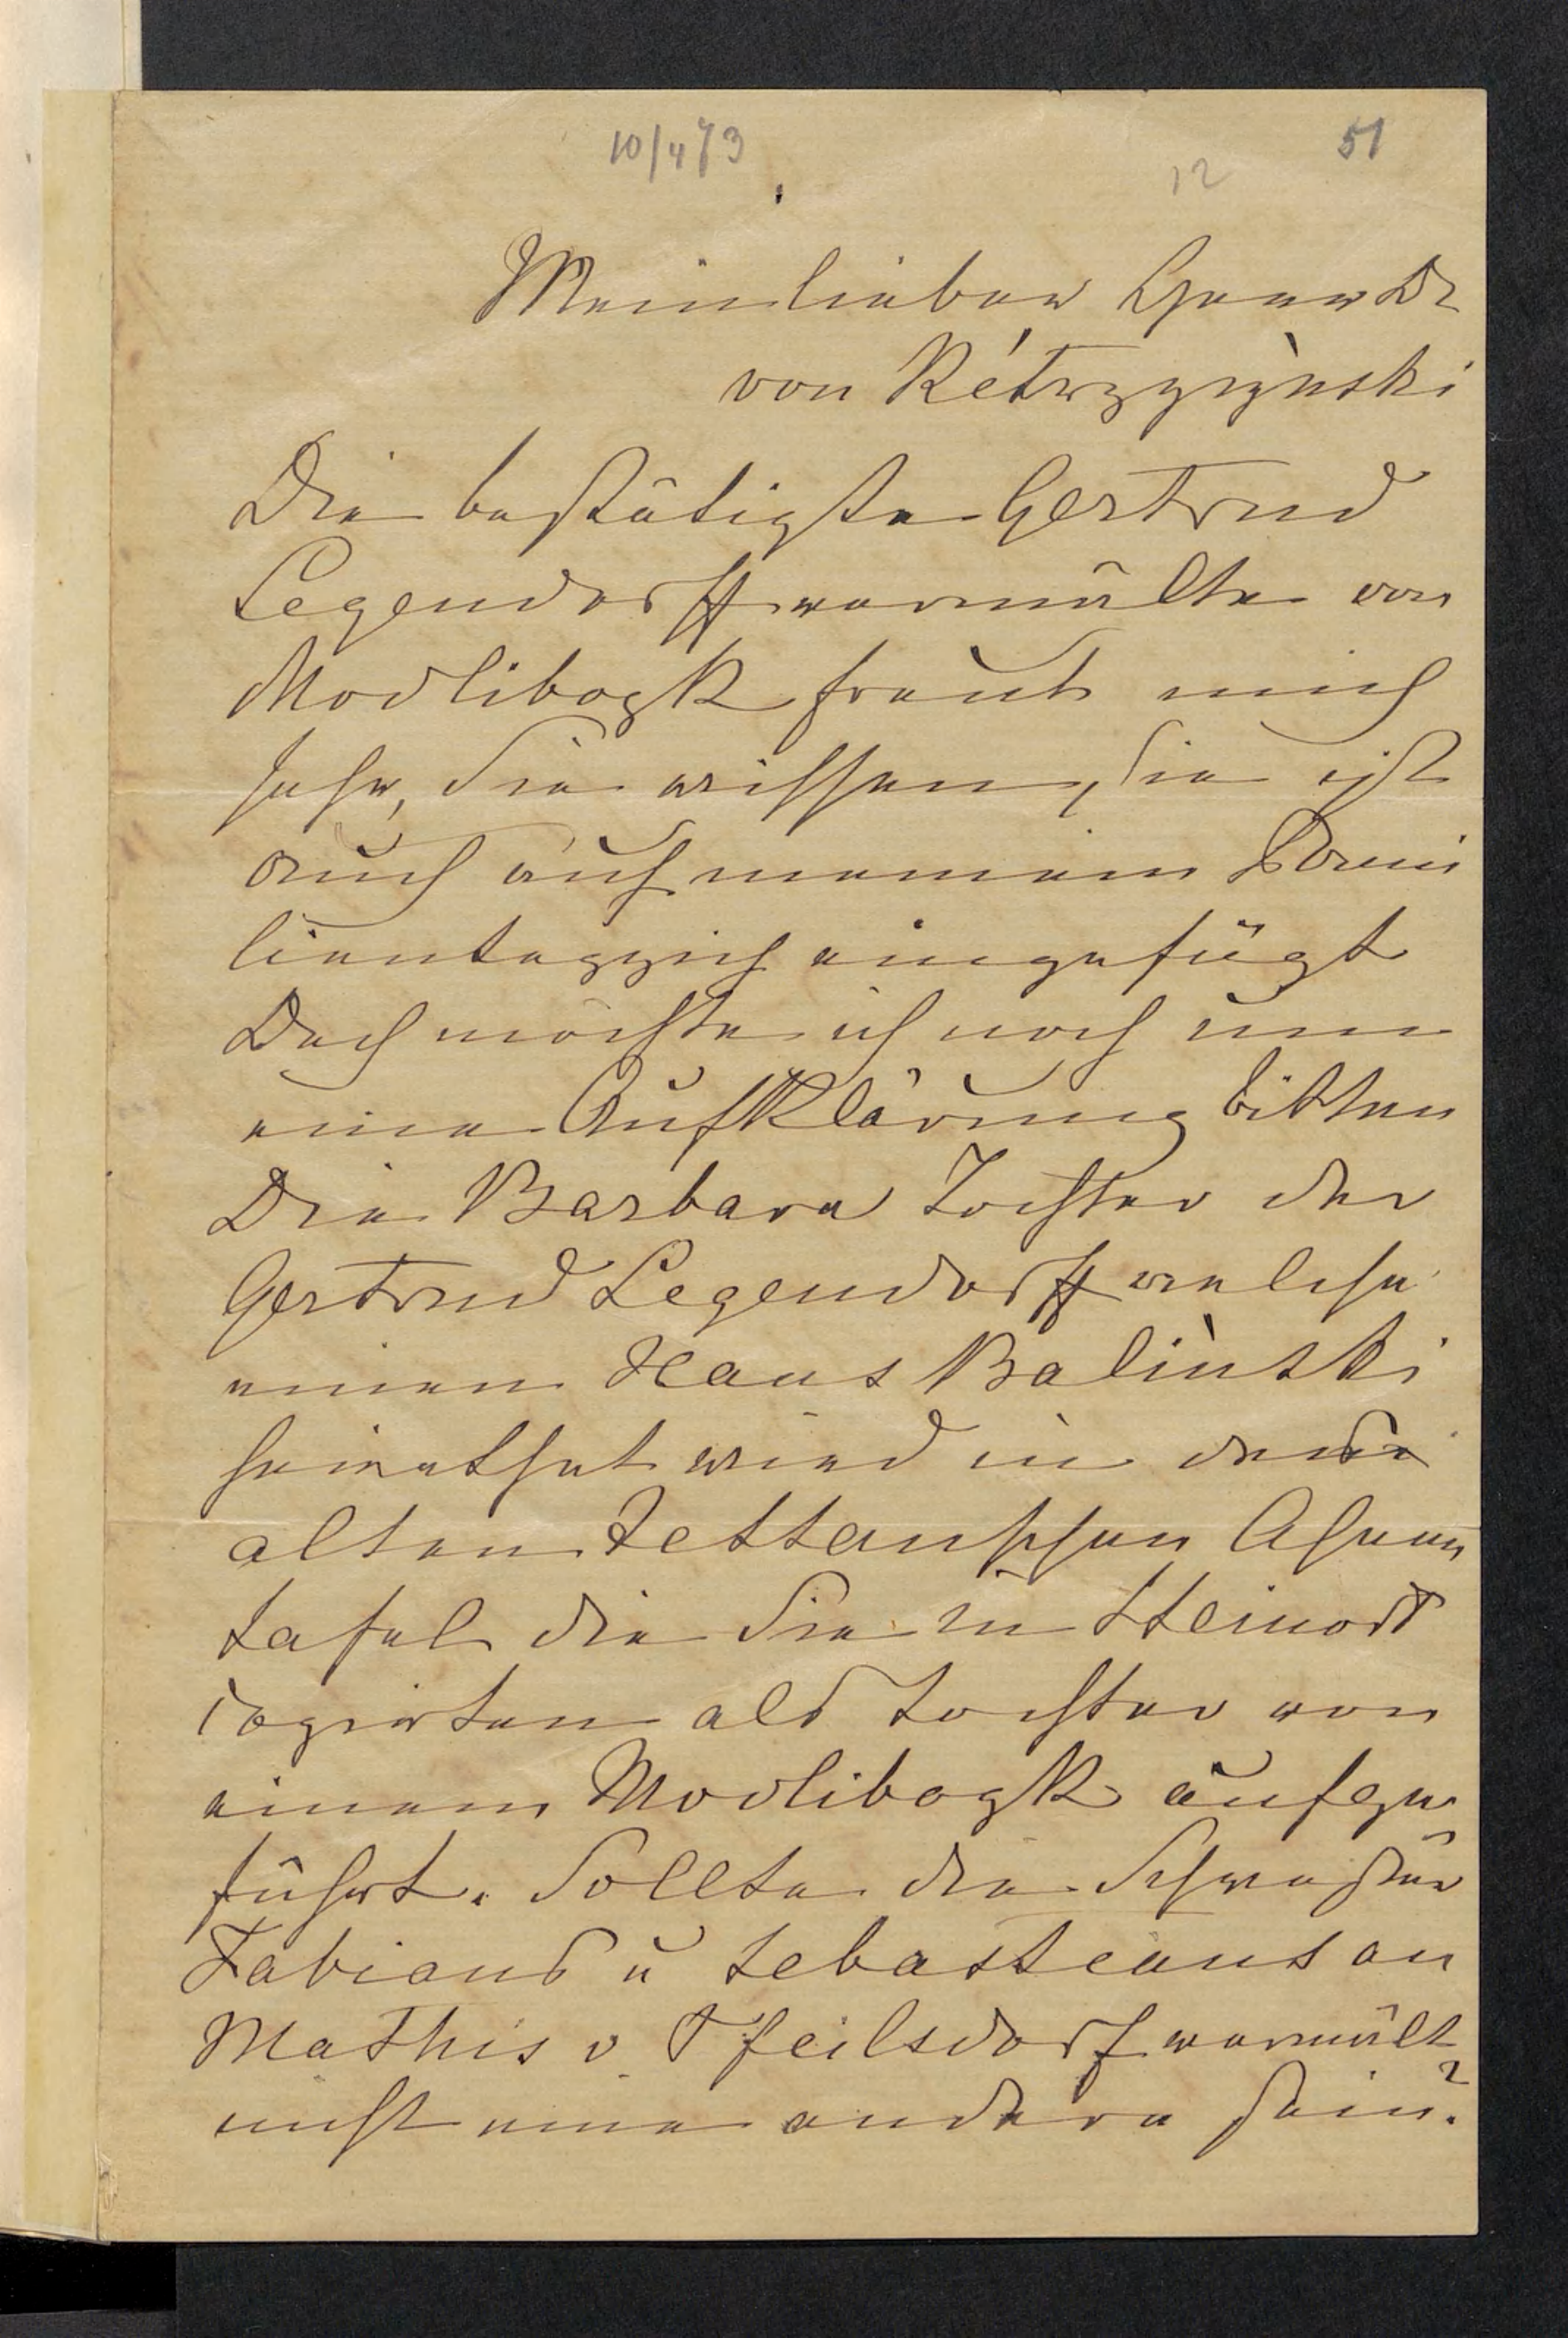 10/4 73
51
12
Mein lieber Herr Dr
von Kétrzyzyǹski
Die bestätigte Gertrud
Legendorff vermälte von
Modlibogk freut mich
sehr, Sie wissen, sie ist
auch auf meinem Fami
lienteppich eingefügt
Doch möchte ich noch um
eine Aufklärung bitten
Die Barbara Tochter der
Gertrud Legendorff welche
einen Hans Baliǹski
heirathet wird in der
alten Tettauschen Ahnen
tafel die Sie in Steinort
copirten als Tochter von
einem Modlibogk aufge
führt. Sollte die Schwester
Fabians u Sebasteans an
Mathis v Pfeilsdorf vermält
nicht eine andere sein?